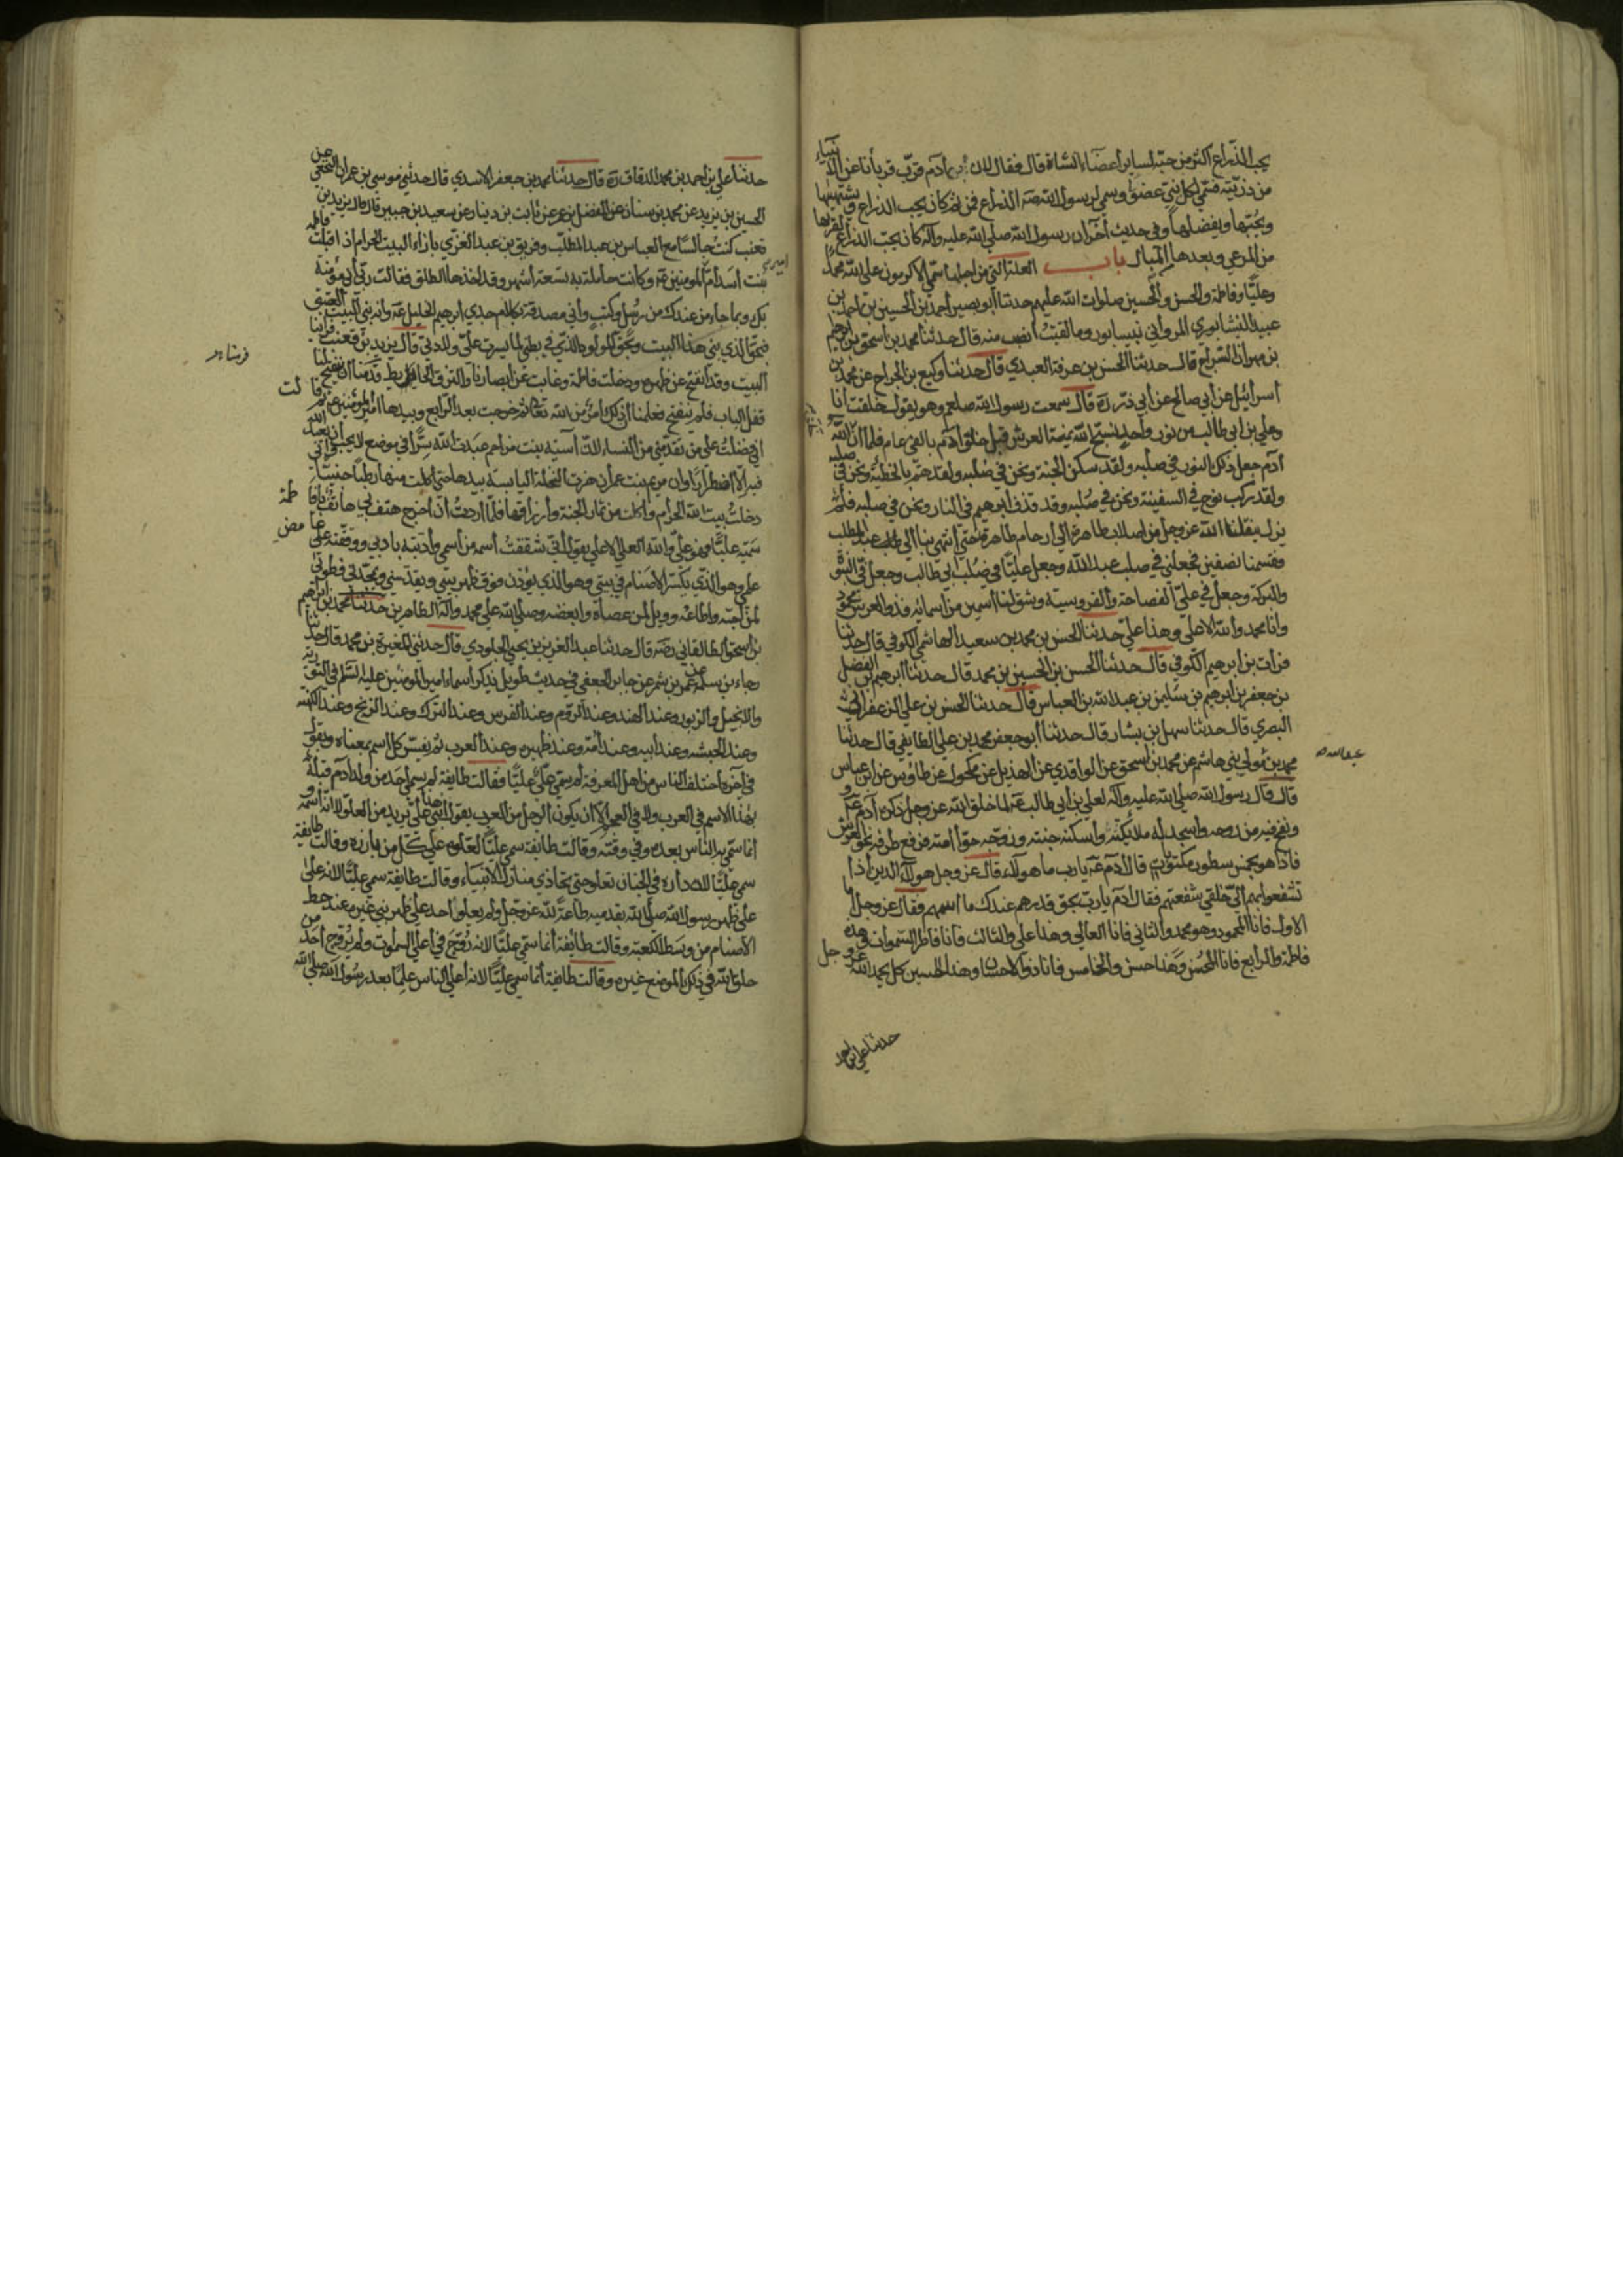 يحب الذراع اكثر من حبه لساير اعضاء الشاة قال فقال لان آدم قرب قربانا عن الانبياء
من ذريته فسمى لكل نبي عضوا وسمى لرسول الله صه الذراع فمن ثم كان يحب الذراع ويشتهيها
ويحبها ويفضلها وفي حديث آخر ان رسول الله صلى الله عليه وآله كان يحب الذراع لقربها
من المرعى وبعدها من المبال باب العلة التي من اجلها سمي الاكرمون على الله محمدا
وعليا وفاطمة والحسن والحسين صلوات الله عليهم حدثنا أبو نصير أحمد بن الحسين بن احمد بن
عبيد النيشابوري المرواني بنيسابور وما لقيت أنصب منه قال حدثنا محمد بن اسحق بن ابرهيم
بن مهران السراج قال حدثنا الحسن بن عرفة العبدي قال حدثنا وكيع بن الجراح عن محمد بن
اسرائيل عن ابي صالح عن أبي ذر ره قال سمعت رسول الله صلعم وهو يقول خلقت أنا
وعلي بن ابي طالب من نور واحد نسبح الله يمنة العرش قبل خلق آدم بالفي عام فلما ان خلق الله
آدم جعل ذلك النور في صلبه ولقد سكن الجنة ونحن في صلبه ولقد هم بالخطيئة ونحن في صلبه
ولقد ركب نوح في السفينة ونحن في صلبه وقد قذف ابرهيم في النار ونحن في صلبه فلم
يزل ينقلنا الله عز وجل من اصلاب طاهرة الى ارحام طاهرة حتى انتهى بنا الى عبد المطلب
فقسمنا نصفين فجعلني في صلب عبد الله وجعل عليا في صلب ابي طالب وجعل في النبوة
والبركة وجعل في علي الفصاحة والفروسية وشق لنا اسمين من اسمائه فذو العرش محمود
وانا محمد والله الاعلى وهذا علي حدثنا الحسن بن محمد بن سعيد الهاشمي الكوفي قال حدثنا
فرات بن ابرهيم الكوفي قال حدثنا الحسن بن الحسين بن محمد قال حدثنا ابرهيم بن الفضل
بن جعفر بن ابرهيم بن سليمن بن عبد الله بن العباس قال حدثنا الحسن بن علي الزعفراني
البصري قال حدثنا سهل بن بشار قال حدثنا أبو جعفر محمد بن علي الطايفي قال حدثنا
محمد بن عبدالله مولى بني هاشم عن محمد بن اسحق عن الواقدي عن الهذيل عن مكحول عن طاوس عن ابن عباس
قال قال رسول الله صلى الله عليه وآله لعلي بن ابي طالب عه لما خلق الله عز وجل ذكره آدم عه
ونفخ فيه من روحه واسجد له ملائكته وأسكنه جنته وزوجه حوا أمته فرفع طرفه نحو العرش
فاذا هو بخمس سطور مكتوبات قال آدم عه يا رب ما هولاء قال عز وجل هولاء الذين اذا
تشفعوا بهم الي خلقي شفعتهم فقال آدم يا رب بحق قدرهم عندك ما اسمهم فقال عز وجل اما
الاول فانا المحمود وهو محمد والثاني فانا العالي وهذا علي والثالث فانا فاطر السموات وهذه
فاطمة والرابع فانا المحسن وهذا حسن والخامس فانا ذو الاحسان وهذا الحسين كل يحمد الله عز وجل
حدثنا علي بن احمد
حدثنا علي بن احمد بن محمد الدقاق ره قال حدثنا محمد بن جعفر الاسدي قال حدثني موسى بن عمران النخعي عن
الحسين بن يزيد عن محمد بن سنان عن المفضل بن عمر عن ثابت بن دينار عن سعيد بن جبير قال قال يزيد بن
قعنب كنت جالسا مع العباس بن عبد المطلب وفريق بن عبد العزى بازاء البيت الحرام اذ اقبلت فاطمة
بنت أسد أم امير المومنين عه وكانت حاملة به لتسعة أشهر وقد اخذها الطلق فقالت رب أني مؤمنة
بك وبما جاء من عندك من رسل وكتب وأني مصدقة بكلام جدي ابرهيم الخليل عه وانه بنى البيت العتيق
فبحق الذي بنى هذا البيت وبحق المولود الذي في بطني لما يسرت علي ولادتي قال يزيد بن قعنب فراينا
البيت وقد انفتح عن ظهره ودخلت فاطمة وغابت عن ابصارنا والتزق الحايط فرمنا ان ينفتح لنا
قفل الباب فلم ينفتح فعلمنا أن ذلك امر من الله تعالى ثم خرجت بعد الرابع وبيدها أمير المؤمنين عه ثم قالت
اني فضلت على من تقدمني من النساء لان آسية بنت مزاحم عبدت الله سرا في موضع لا يحب أن يعبد الله
فيه الا اضطرارا وان مريم بنت عمران هزت النخلة اليابسة بيدها حتى اكلت منها رطبا جنيا واني
دخلت بيت الله الحرام واكلت من ثمار الجنة وأرزاقها فلما اردت أن اخرج هتف بي هاتف يا فاطمة
سميه عليا فهو علي والله العلي الاعلى يقول اني شققت أسمه من أسمي وأدبته بادبي ووقفته على غامض
علمي وهو الذي يكسر الاصنام في بيتي وهو الذي يؤذن فوق ظهر بيتي ويقدسني ويمجدني فطوبى
لمن احبه واطاعه وويل لمن عصاه وابغضه وصلى الله على محمد وآله الطاهرين حدثنا محمد بن ابرهيم
بن اسحق الطالقاني رضه قال حدثنا عبد العزيز بن يحيى الجلودي قال حدثني المغيرة بن محمد قال حدثنا
رجاء بن سلمة عن عمرو بن شمر عن جابر الجعفي في حديث طويل يذكر أسماء امير المؤمنين عليه السلم في التورية
والانجيل والزبور وعند الهند وعند الروم وعند الفرس وعند الترك وعند الزنج وعند الكهنه
وعند الحبشه وعند ابيه وعند أمه وعند ظهره وعند العرب ثم يفسر كل اسم بمعناه ويقول
في آخره اختلف الناس من اهل المعرفة لم سمي علي عليا فقالت طايفة لم يسم احد من ولد آدم قبله
بهذا الاسم في العرب ولا في العجم الا ان يكون الرجل من العرب يقول ابني هذا علي يريد من العلو لا انه أسمه و
انما سمي به الناس بعده وفي وقته وقالت طايفة سمي عليا لعلوه على كل من بارزه وقالت طايفة
سمي عليا لان داره في الجنان تعلو حتى تحاذي منازل الانبياء وقالت طايفة سمي عليا لانه على
على ظهر رسول الله صلى الله بقدميه طاعة لله عز وجل ولم يعل احد على ظهر نبي غيره عند حط
الاصنام من وسط الكعبة وقالت طائفة أنما سمي عليا لانه زوج في اعلى السموات ولم يزوج احد من
خلق الله في ذلك الموضع غيره وقالت طايفة أنما سمي عليا لانه أعلى الناس علما بعد رسول الله صلى الله